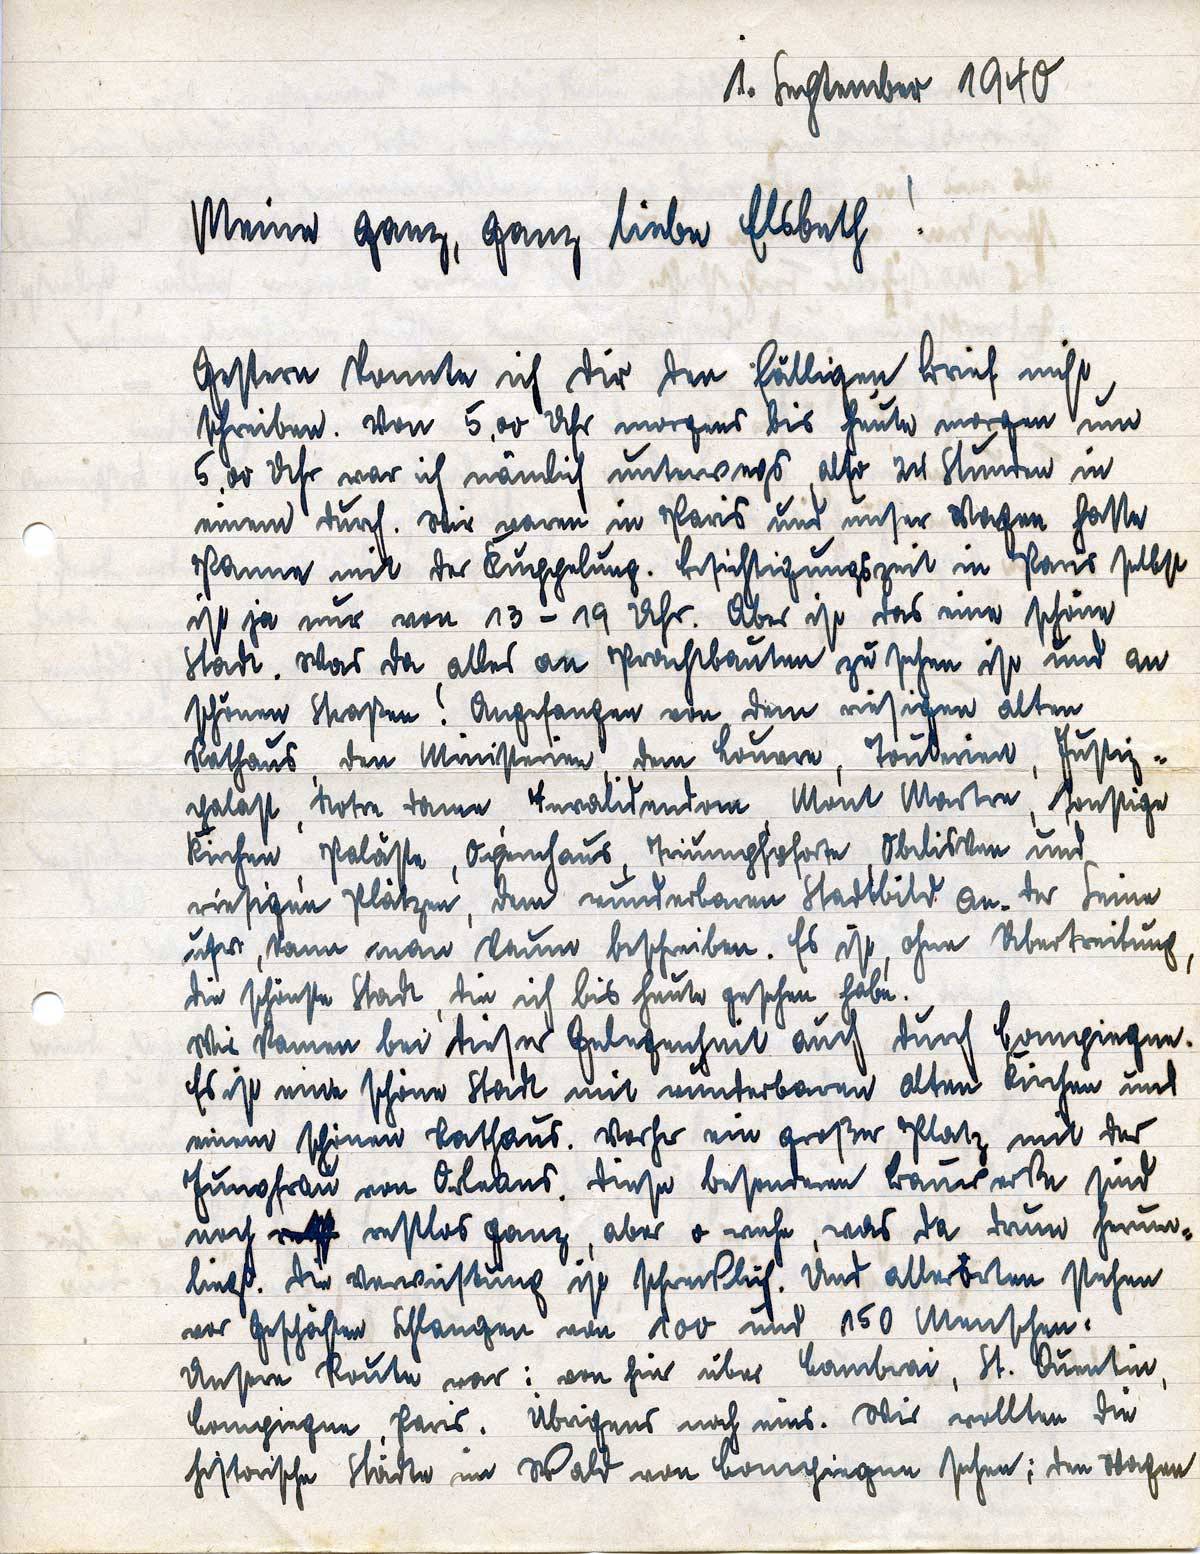 1. September 1940
Meine ganz, ganz liebe Elsbeth!
Gestern konnte ich dir den fälligen Brief nicht
schreiben. Von 5,00 Uhr morgens bis heute morgen um
5,00 Uhr war ich nämlich unterwegs, also 24 Stunden in
einem durch. Wir waren in Paris und unser Wagen hatte
Panne mit der Kuppelung. Besichtigungszeit in Paris selbst
ist ja nur von 13 – 19 Uhr. Aber ist das eine schöne
Stadt. Was da alles an Prachtbauten zu sehen ist und an
schönen Straßen! Angefangen von dem riesigen alten
Rathaus, den Ministerien, dem Louvre, Toulerien, Justiz-
palast, Notre Dame, Invalidendom, Mont Martre, sonstige
Kirchen, Paläste, Opernhaus, Triumphpforte, Obelisken und
riesigen Plätzen, dem wunderbaren Stadtbild an der Seine
ufer, kann man kaum beschreiben. Es ist, ohne Übertreibung,
die schönste Stadt, die ich bis heute gesehen habe.
Wir kamen bei dieser Gelegenheit auch durch Compiegne.
Es ist eine schöne Stadt mit wunderbaren alten Kirchen und
einem schönen Rathaus. Vorher ein großer Platz mit der
Jungfrau von Orleans. Diese besonderen Bauwerke sind
noch restlos ganz, aber o wehe, was da drum herum-
liegt. Die Verwüstung ist schrecklich. Und allerorten stehen
vor Geschäften Schlangen von 100 und 150 Menschen.
Unsere Route war: von hier über Cambrai, St. Quentin,
Compiegne, Paris. Übrigens noch eins. Wir wollten die
historische Stätte im Wald von Compiegne sehen; den Wagen